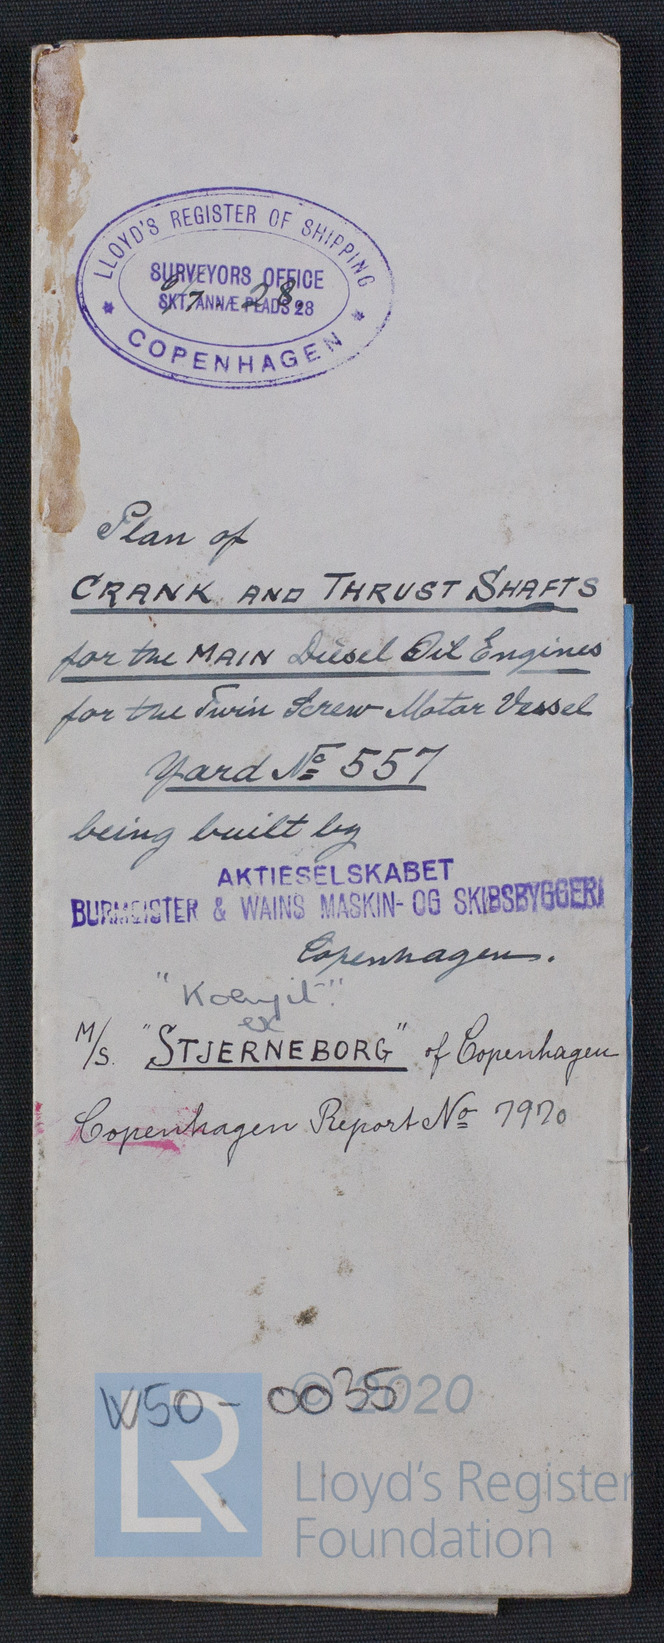 LLOYD'S REGISTER OF SHIPPING
SURVEYORS OFFICE
9/7 28.
SKT. ANNÆ PLADS 28
COPENHAGEN
Plan of
CRANK AND THRUST SHAFTS
for the MAIN Diesel Oil Engines
for the Twin Screw Motor Vessel
Yard No 557
being built by
AKTIESELSKABET
BURMEISTER & WAINS MASKIN- OG SKIBSBYGGERI
Copenhagen.
ex
M/S. "STJERNEBORG" of Copenhagen
Copenhagen Report No 7970
W50-0035
© 2020
LR
Lloyd's Register
Foundation